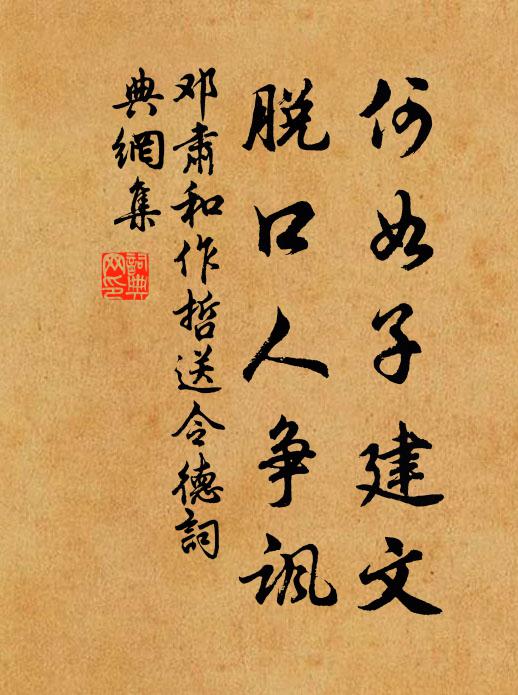 何如子建文
脱口人争讽
邓肃和作哲送令德词
典網集
詞典
网印